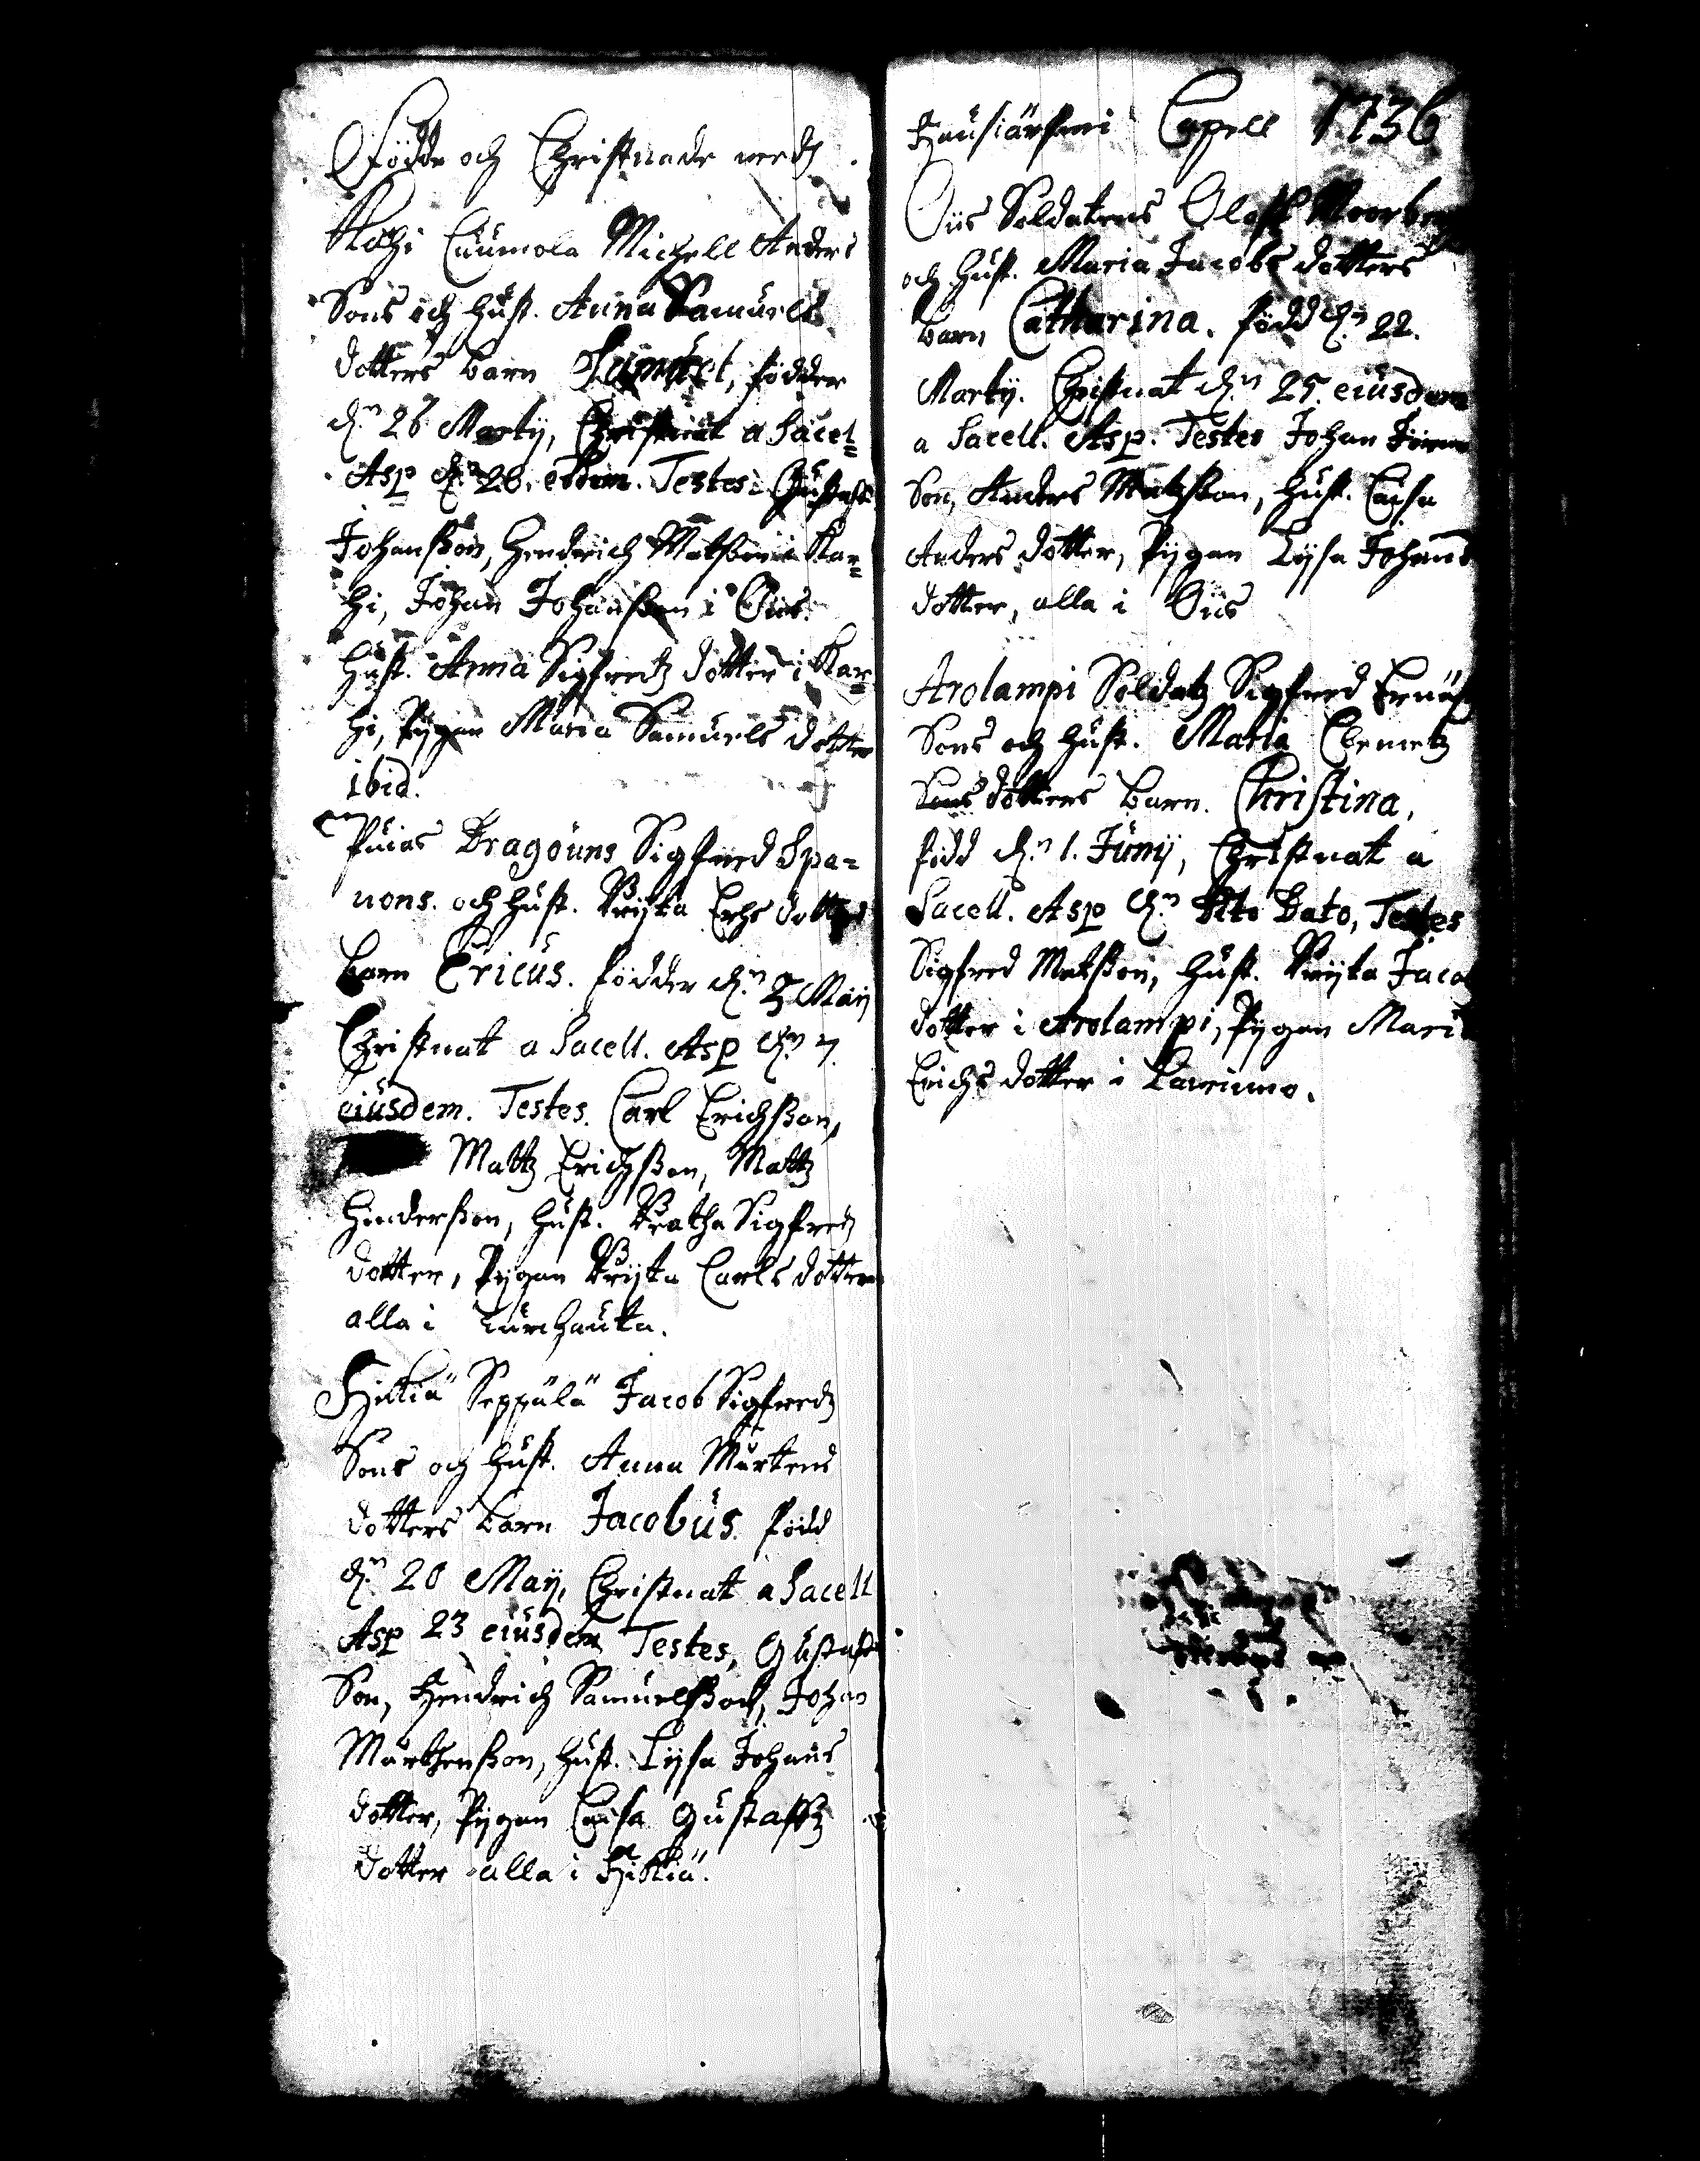 Födde och Christnade wed
Karhi Cuumola Michell Anders
Sons och hust. Anna Samuels
dotters barn, födder
dn 26 Martij, Christnat a Sacel=
Asp dn 28. Testes Gustaf
Johansson, Hendrich Matsson i Kar=
hi, Johan Johansson i Oiis
hust. Anna Sigfredz dotter i Kar=
hi, Pygan Maria Samuels dotter
ibid.
Puias Dragouns Sigfred Spa=
nons. och hust. Brijta Erhs dotters
barn Ericus. födder dn 5 Maij
Christnat a Sacell. Asp dn 7.
eiusdem. Testes. Carl Erichsson,
Mattz Erichsson, Mattz
Hendersson, hust. Beatha Sigfredz
dotter, Pygan Brijta Carls dotter
alla i Turchauta.
Hikiä Seppälä Jacob Sigfredz
Sons och hust. Anna Mårtens
dotters barn Jacobus. född
dn 20 Maij, Christnat a Sacell
Asp 23 eiusdem Testes, Gustaf
Son, Hendrich Samuelsson, Johan
Mårthensson, hust. Lijsa Johans
dotter, Pygan Caisa Gustaffz
dotter alla i Hikiä.
Hausiärfwi Capell 1736
Oiis Soldatens Oloff Moorberg
och hust. Maria Jacobs dotters
barn Catharina. född dn 22.
Martij. Christnat dn 25. eiusdem
a Sacell. Asp. Testes Johan
Son, Anders Matzsson, hust. Caisa
Anders dotter, Pygan Lijsa Johans
dotter, alla i Oiis
Arolampi Soldatz Sigfred
Sons och hust. Maria Clemetz
Sons dotters barn. Christina,
född dn 1. Junij, Christnat a
Sacell. Asp dn Dito Dato, Testes
Sigfred Matsson, hust. Brijta Jacobs
dotter i Arolampi, Pygan Maria
Erichs dotter i